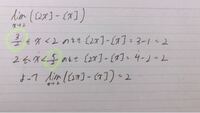 lim ([2x]-[x])
x→2
3/2 ≤ x < 2 のとき [2x]-[x] = 3-1 = 2
2 ≤ x < 5/2 のとき [2x]-[x] = 4-2 = 2
よって lim ([2x]-[x]) = 2
x→2